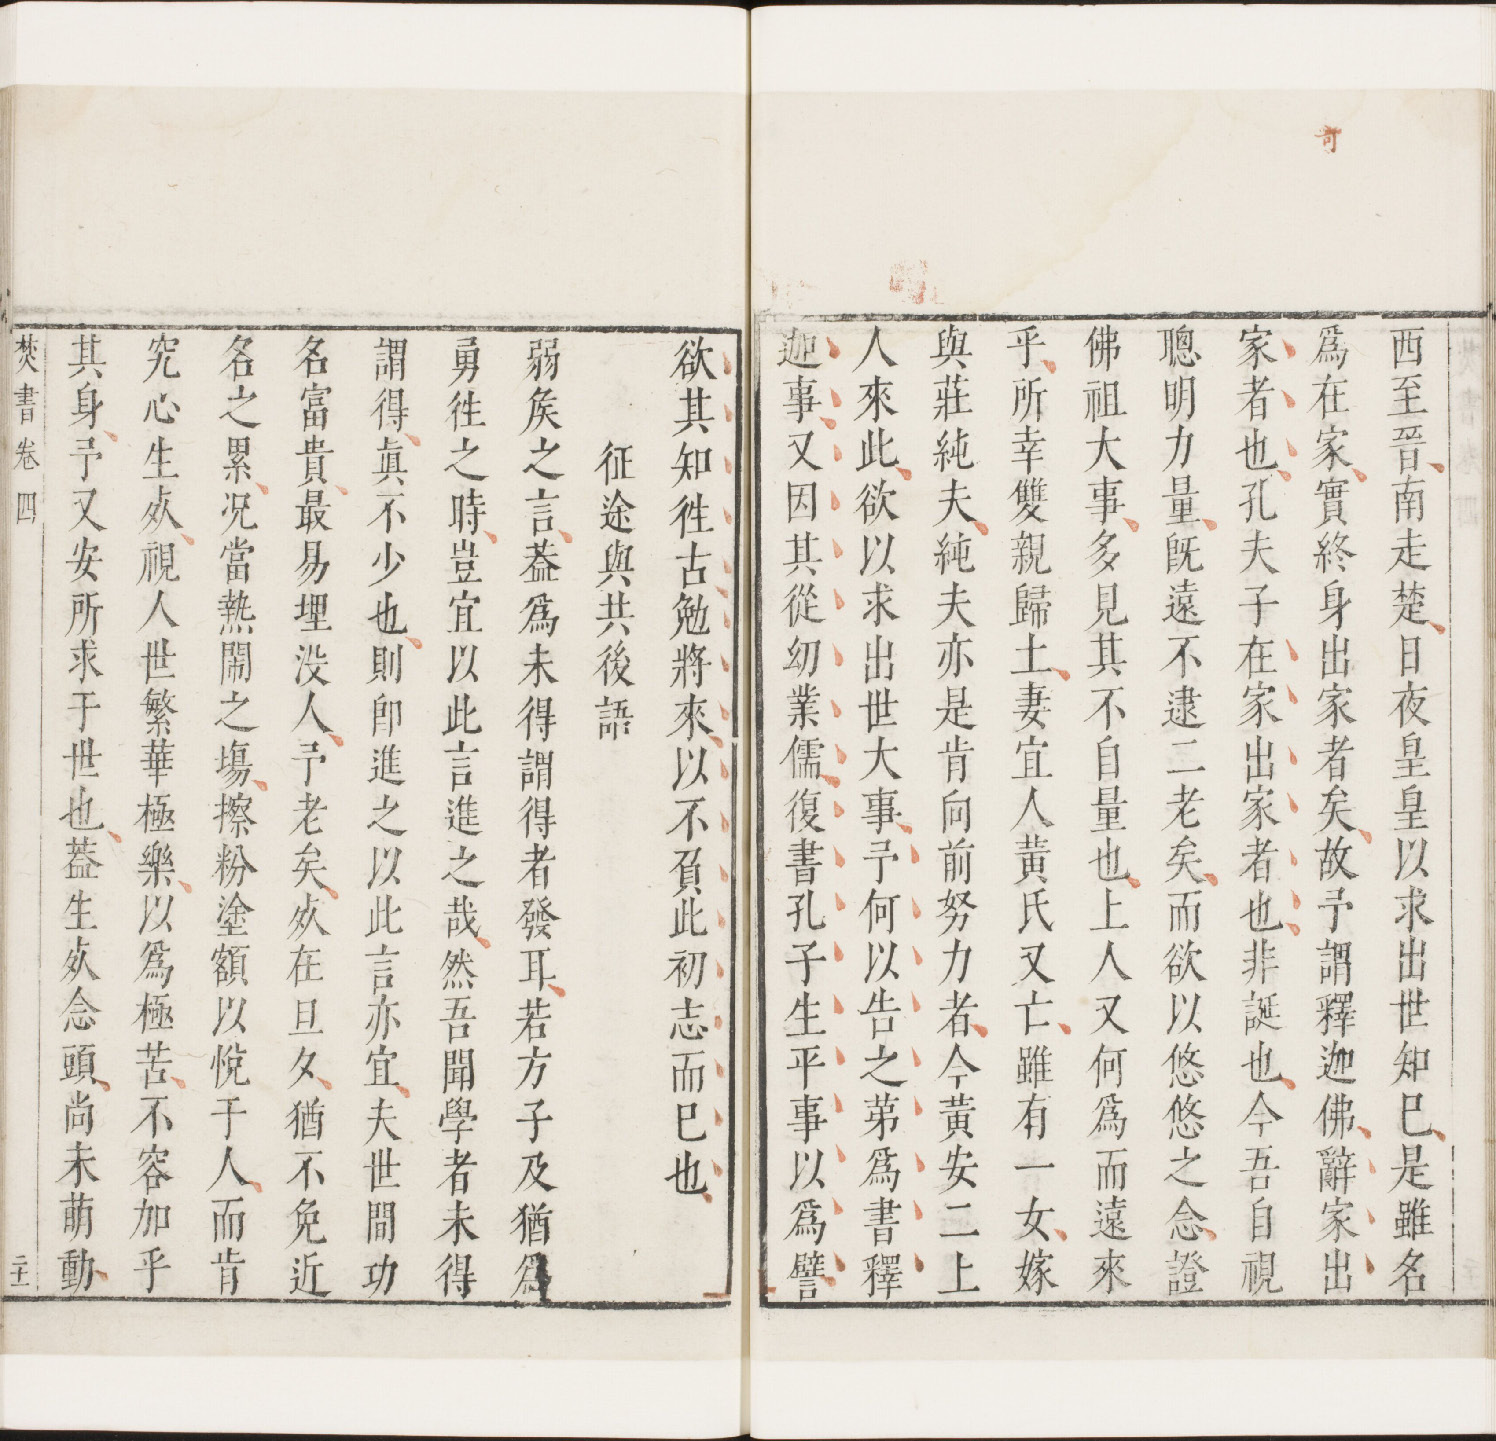 可
西至晉南走楚日夜皇皇以求出世知已是雖名
爲在家實終身出家者矣故予謂釋迦佛辭家出
家者也孔夫子在家出家者也非誕也今吾自視
聰明力量旣遠不逮二老矣而欲以悠悠之念證
佛祖大事多見其不自量也上人又何爲而遠來
乎所幸雙親歸土妻宜人黃氏又亡雖有一女嫁
與莊純夫純夫亦是肯向前努力者今黃安二上
人來此欲以求出世大事予何以告之第爲書釋
迦事又因其從幼業儒復書孔子生平事以爲譬
欲其知徃古勉將來以不負此初志而已也
征途與共後語
弱矦之言葢爲未得謂得者發耳若方子及猶爲
勇徃之時豈宜以此言進之哉然吾聞學者未得
謂得眞不少也則卽進之以此言亦宜夫世間功
名富貴最易埋没人予老矣㱠在旦夕猶不免近
名之累况當熱鬧之塲擦粉塗額以悅于人而肯
究心生㱠視人世繁華極樂以爲極苦不容加乎
其身予又安所求于世也葢生㱠念頭尚未萌動
焚書卷四
二十一